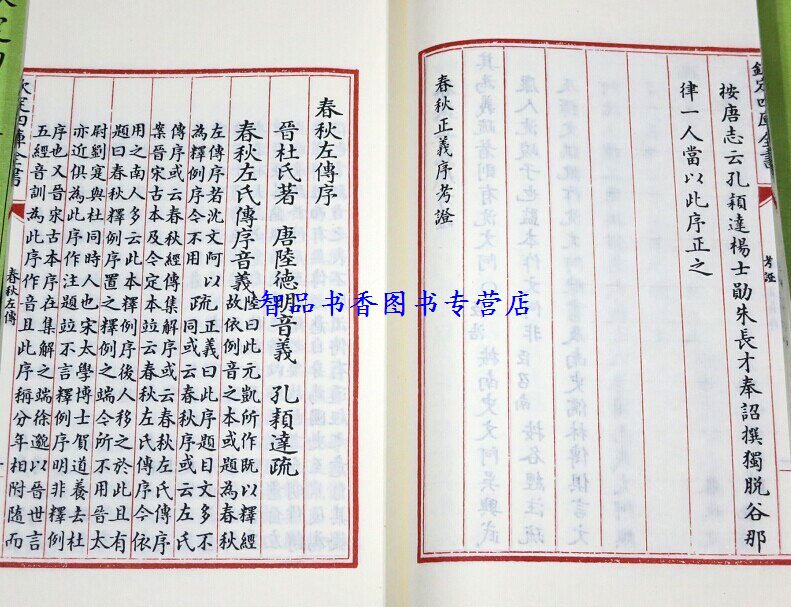 欽定四庫全書
考證
按唐志云孔穎達楊士勛朱長才奉詔撰獨脫谷那
律一人當以此序正之
春秋正義序考證
春秋左傳序
晉杜氏著 唐陸德明音義 孔穎達疏
春秋左氏傳序音義 陸曰此元凱所作既以釋經
故依例音之本或題為春秋
左傳序者沈文阿以
為釋例序今不用
疏 正義曰此序題目文多不
同或云春秋序或云左氏
傳序或云春秋經傳集解序或云春秋左氏傳序
案晉宋古本及今定本竝云春秋左氏傳序今依
用之南人多云此本釋例序後人移之於此且有
題曰春秋釋例序置之釋例之端今所不用晉太
尉劉寔與杜同時人也宋太學博士賀道養去杜
亦近俱為此序作注題竝不言釋例序明非釋例
序也又晉宋古本序在集解之端徐邈以晉世言
五經音訓為此序作音且此序稱分年相附隨而
欽定四庫全書
春秋左傳
智品书香图书专营店